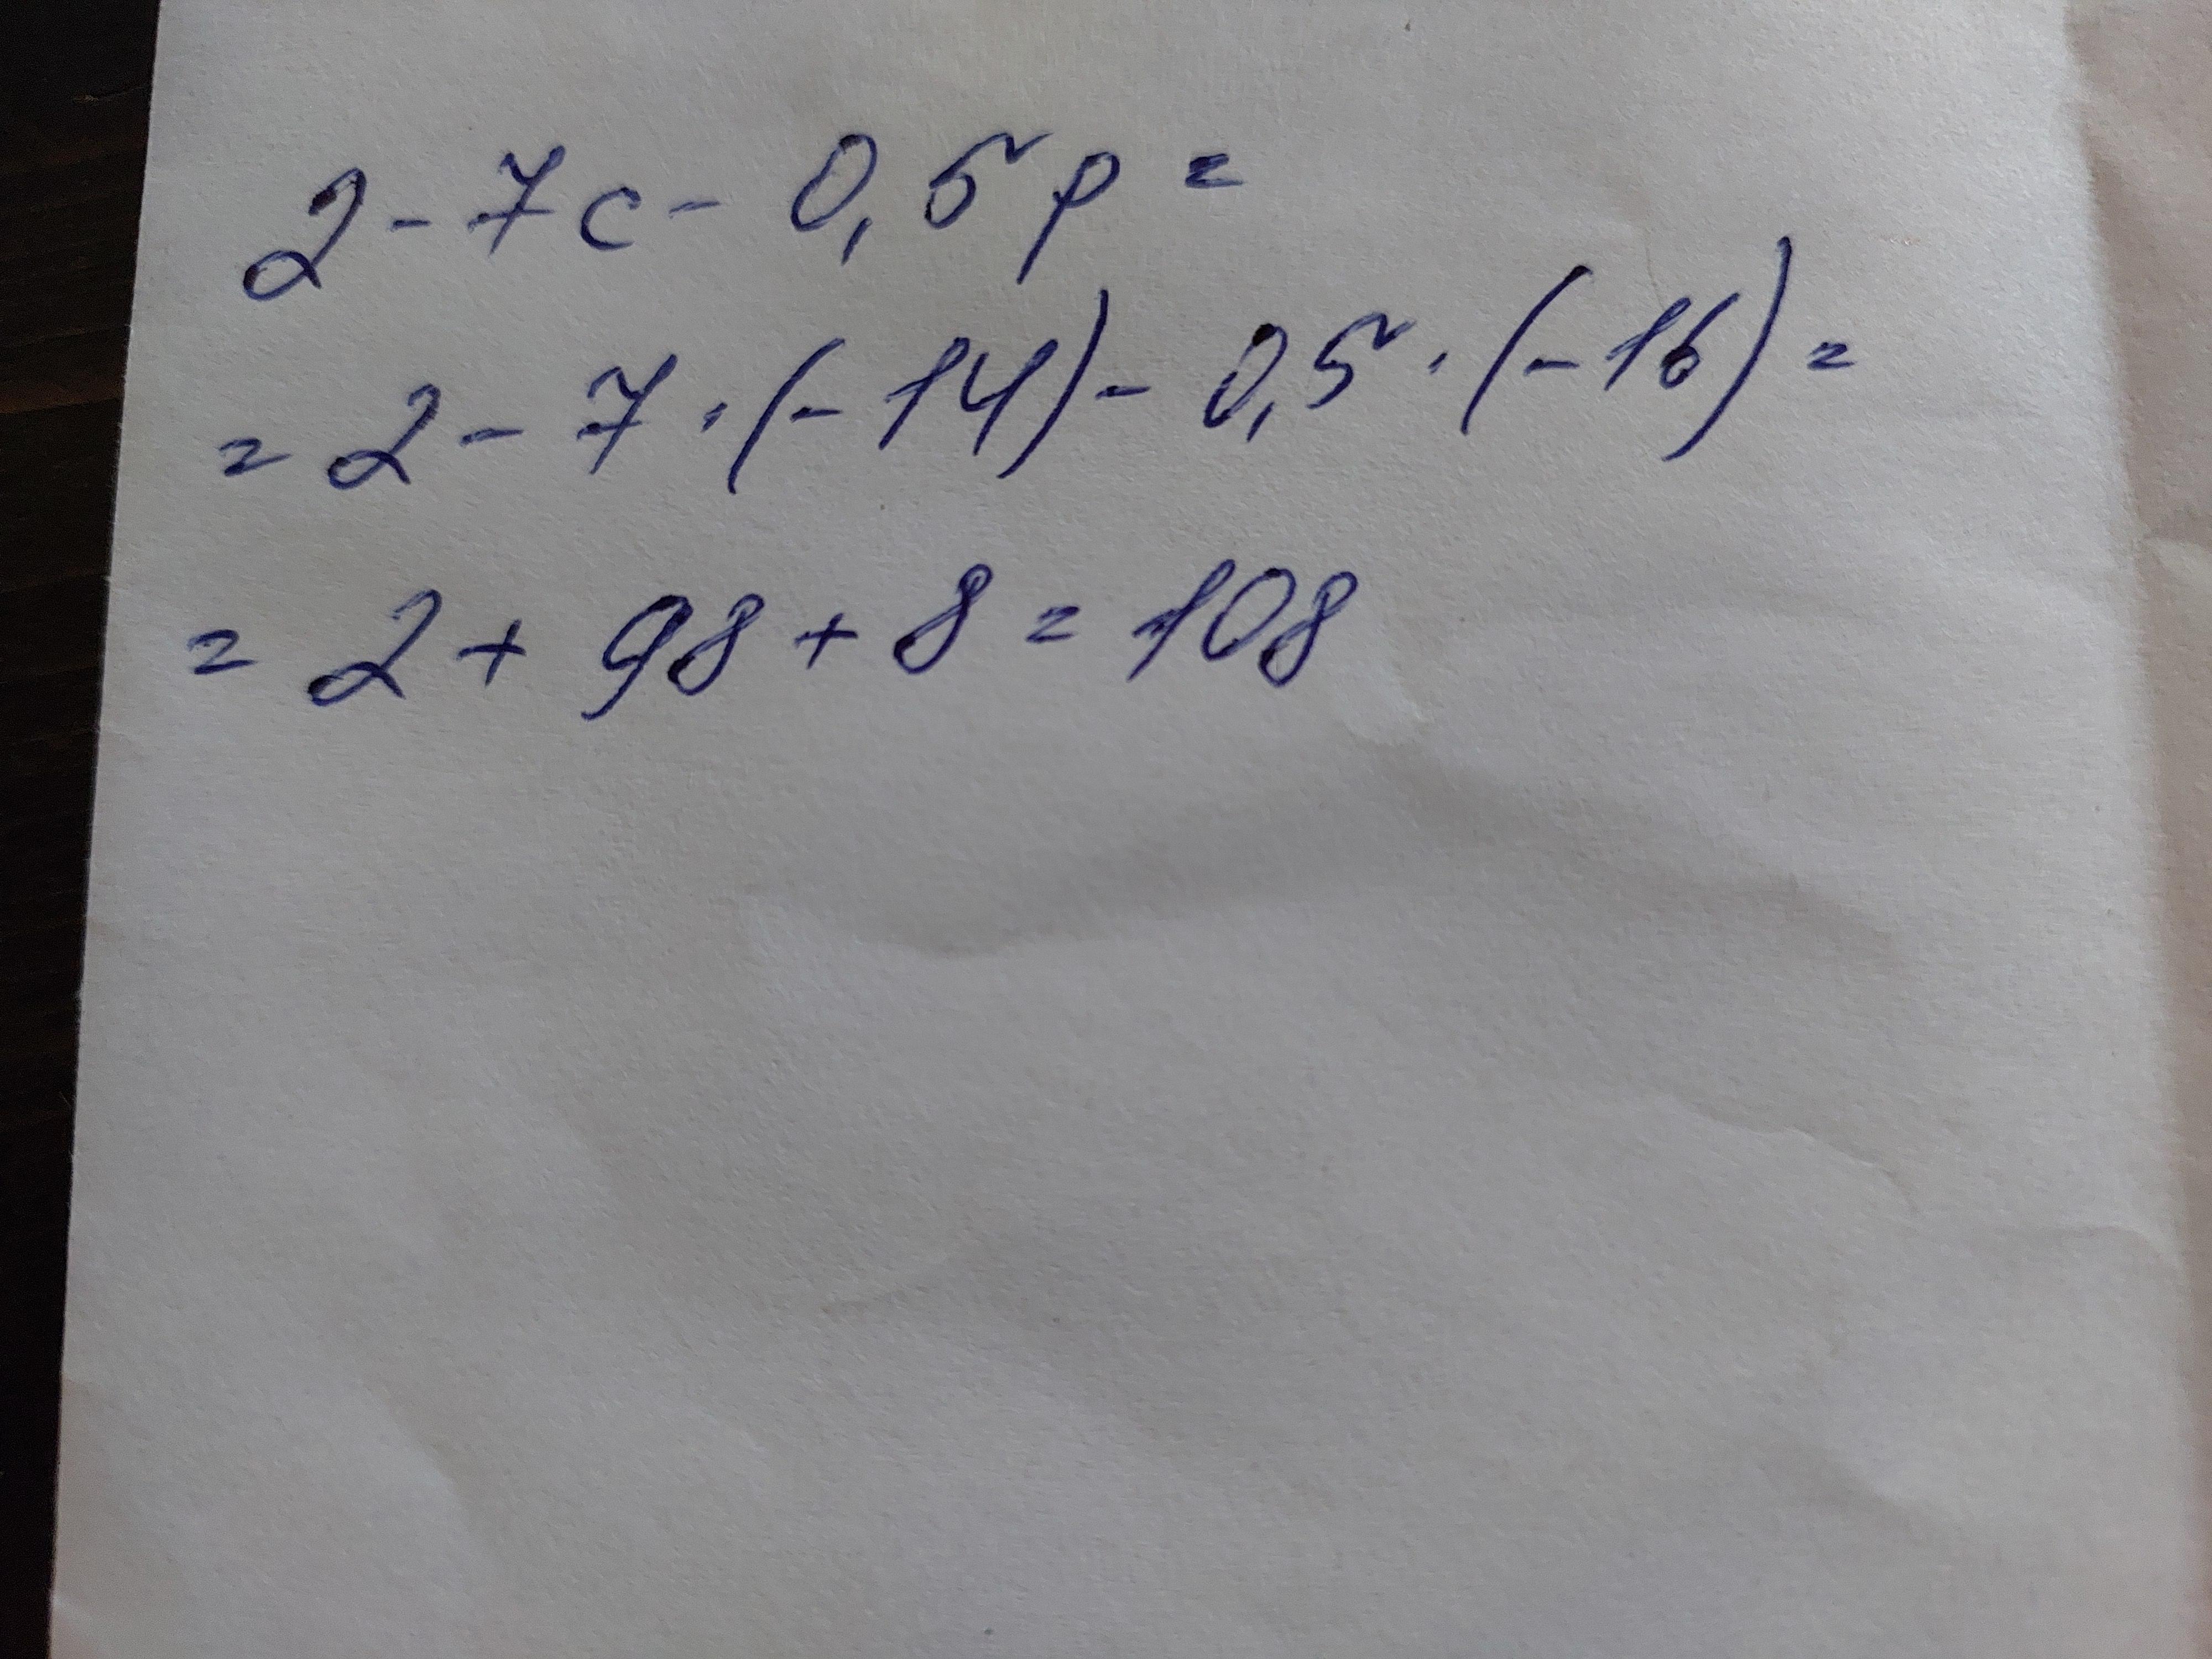 2 - 7c - 0,5p =
= 2 - 7 · (- 14) - 0,5 · (- 16) =
= 2 + 98 + 8 = 108